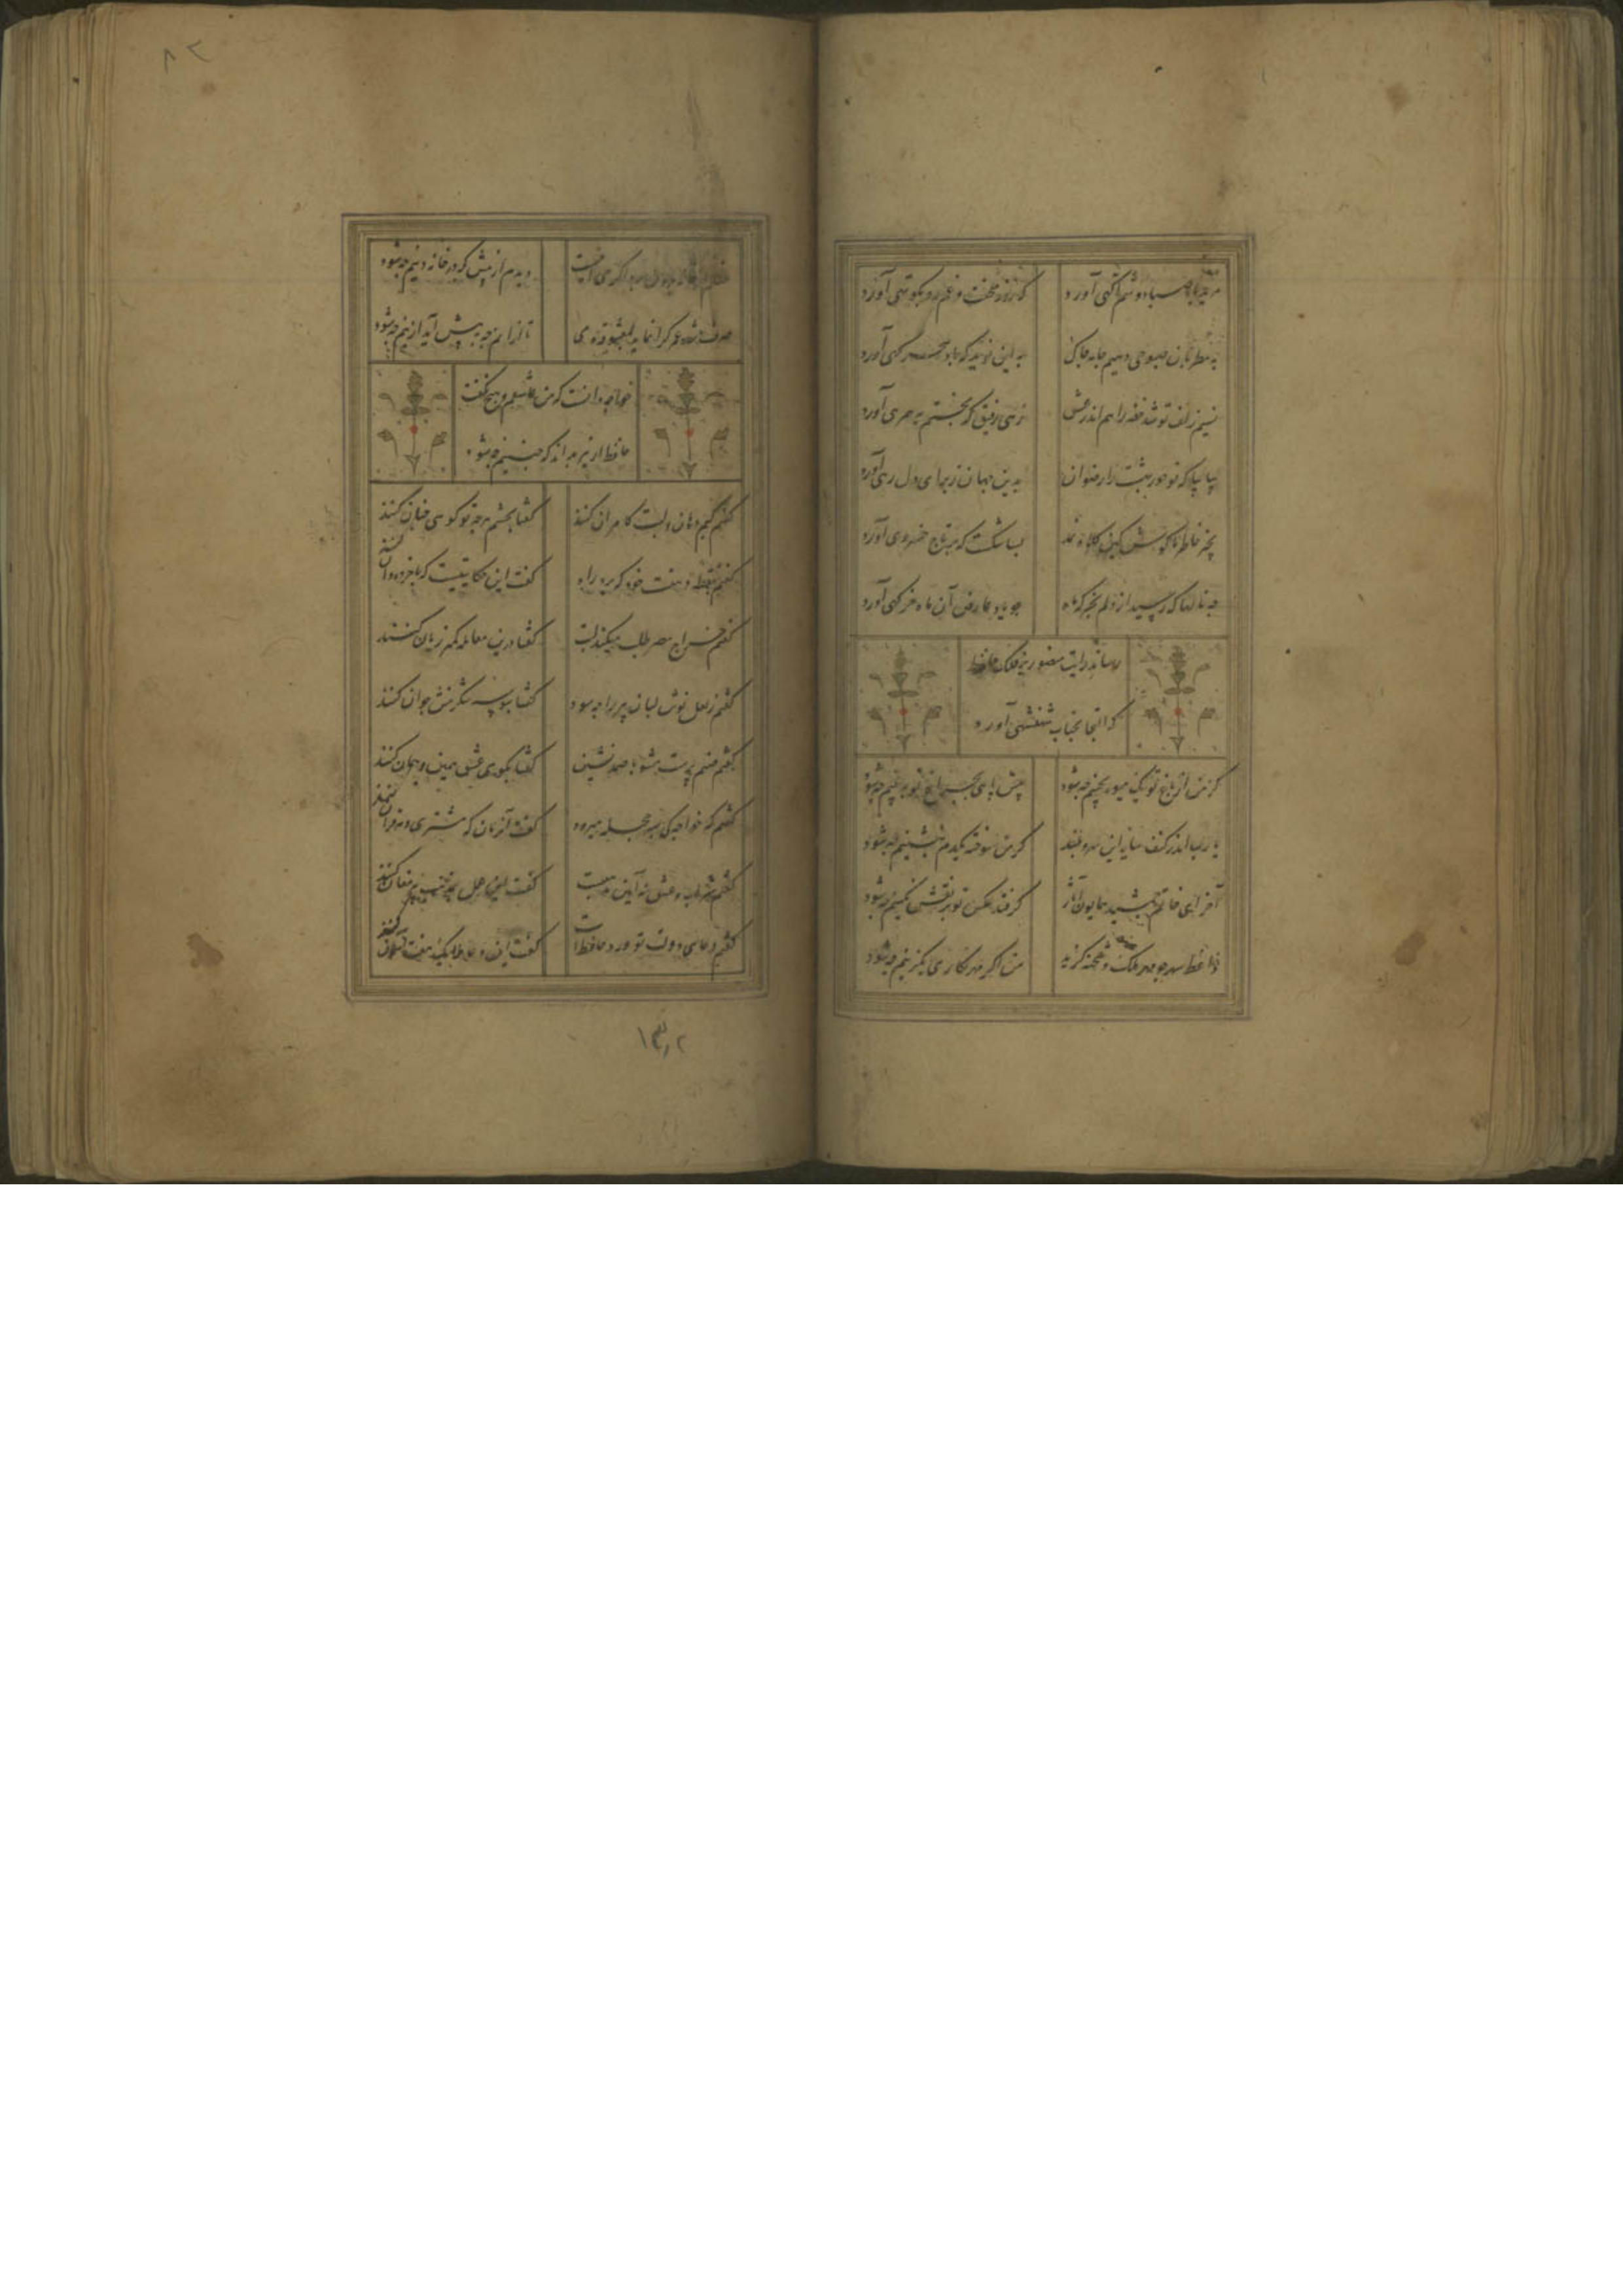 برید باد صبا دوشم آگهی آورد
که روز محنت و غم رو بکوتهی آورد
به مطربان صبوحی دهیم جامه چاک
به این نوید که باد سحرگهی آورد
نسیم زلف تو شد خضر راهم اندر عشق
زهی رفیق که بختم به همرهی آورد
بیا بیا که تو حور بهشت را رضوان
بدین جهان ز برای دل رهی آورد
بخیر خاطر ما کوش کین کلاه نمد
بسا شکست که بر تاج خسروی آورد
چه نالها که رسید از دلم بخرگه ماه
چو یاد عارض آن ماه خرگهی آورد
رساند رایت منصور بر فلک حافظ
که التجا بجناب شهنشهی آورد
گر من از باغ تو یک میوه بچینم چه شود
پیش پای بچراغ تو ببینم چه شود
یا رب اندر کنف سایه این سرو بلند
گر من سوخته یکدم بنشینم چه شود
آخر ای خاتم جمشید همایون آثار
گر فتد عکس تو بر نقش نگینم چه شود
واعظ شهر چو مهر ملک و شحنه گزید
من اگر مهر نگاری بگزینم چه شود
دیدم از پیش که در خانه دینم چه شود
صرف شد عمر گرانمایه بمعشوقه و می
تا از انم چه به پیش آید ازینم چه شود
خواجه دانست که من عاشقم و هیچ نگفت
حافظ ار نیز بداند که چنینم چه شود
گفتم کیم دهان و لبت کامران کنند
گفتا بچشم هر چه تو گوئی چنان کنند
گفتم بنقطه دهنت خود که برد راه
گفت این حکایتیست که با خرده دان کنند
گفتم خراج مصر طلب میکند لبت
گفتا درین معامله کمتر زیان کنند
گفتم ز لعل نوش لبان پیر را چه سود
گفتا ببوسه شکرینش جوان کنند
گفتم صنم پرست مشو با صمد نشین
گفتا بکوی عشق همین و همان کنند
گفتم که خواجه کی بسر حجله میرود
گفت آن زمان که مشتری و مه قران کنند
گفتم شراب و عشق نه آیین مذهبست
گفت این عمل بمذهب پیر مغان کنند
گفتم دعای دولت تو ورد حافظ است
گفت این دعا ملایک هفت آسمان کنند